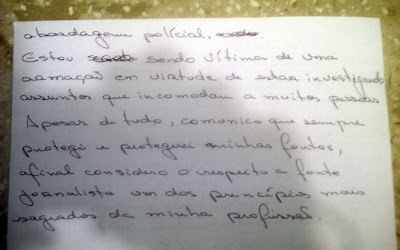 abordagem policial.
Estou sendo vítima de uma
armação em virtude de estar investigando
assuntos que incomodam a muitas pessoas
Apesar de tudo, comunico que sempre
protegi e protegerei minhas fontes,
afinal considero o respeito a fonte
jornalista um dos princípios mais
sagrados de minha profissão.